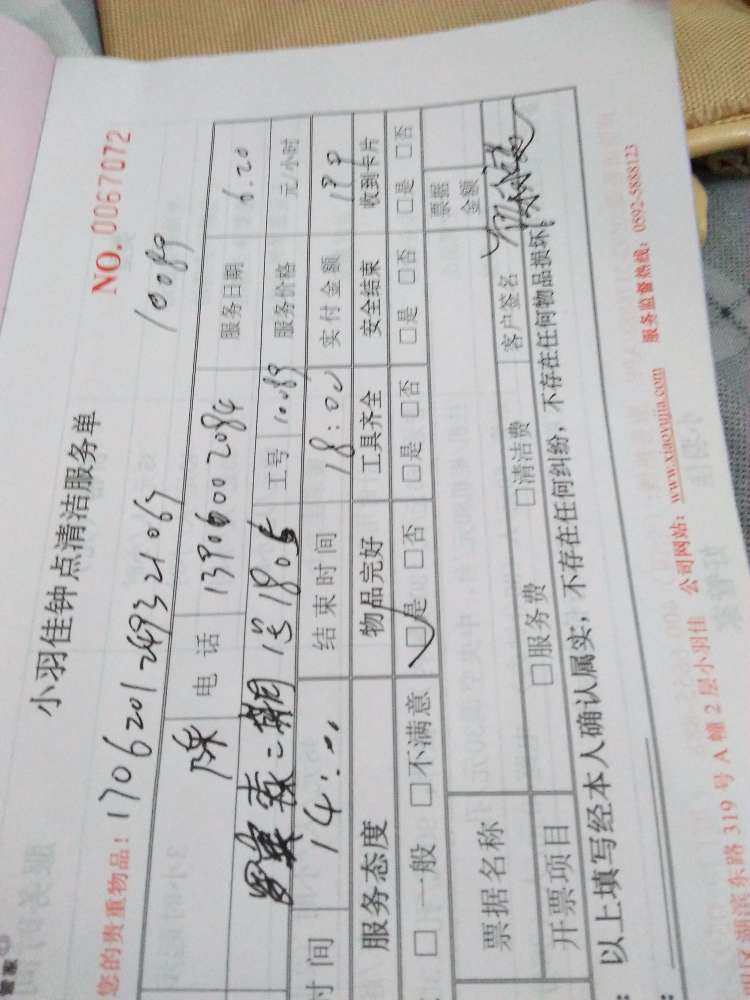 小羽佳钟点清洁服务单
NO. 0067072
您的贵重物品！ 1706201249321067 10089
陈 电话 13906002084 服务日期 6.20
二期 1805 工号 10089 服务价格 元/小时
时间 14:00 结束时间 18:00 实付金额
服务态度 物品完好 工具齐全 安全结束 收到卡片
□一般 □不满意 □是 □否 □是 □否 □是 □否 □是 □否
票据名称 票据金额
开票项目 □服务费 □清洁费 客户签名
以上填写经本人确认属实，不存在任何纠纷，不存在任何物品损坏
区湖滨东路 319 号 A 幢 2 层小羽佳 公司网站：www.xiaoyujia.com 服务监督热线：0592-5888123